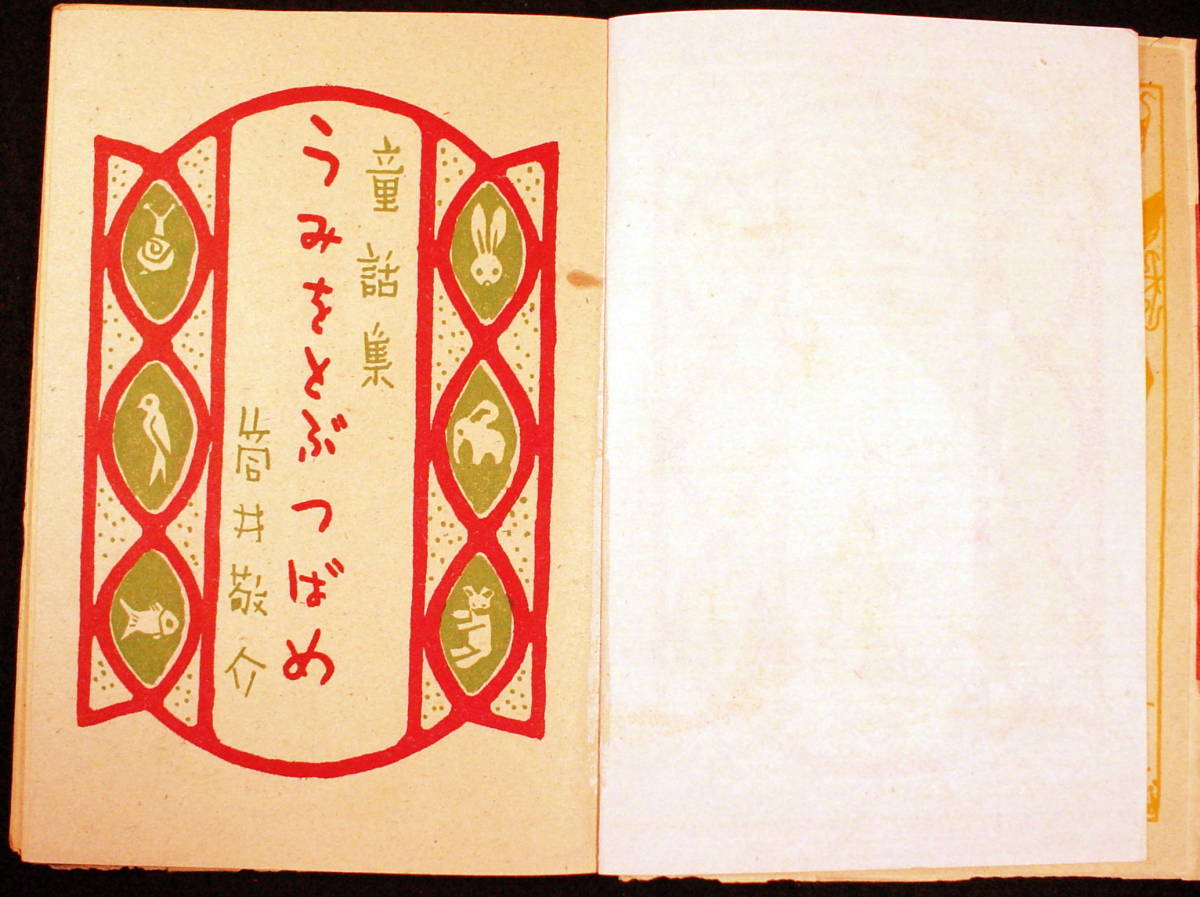 童話集
うみをとぶつばめ
筒井敬介